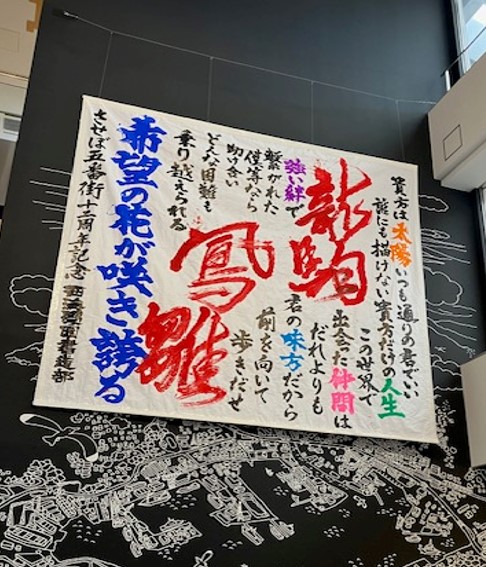 貴方は太陽いつも通りの君でいい
誰にも描けない貴方だけの人生
この世界で
出会た仲間は
だれよりも
君の味方だから
前を向いて
歩きだせ
龍駒
鳳雛
強い絆で
繋がれた
僕等なら
助け合い
どんな困難も
乗り越えられる
希望の花が咲き誇る
させぼ五番街十二周年記念
書道部